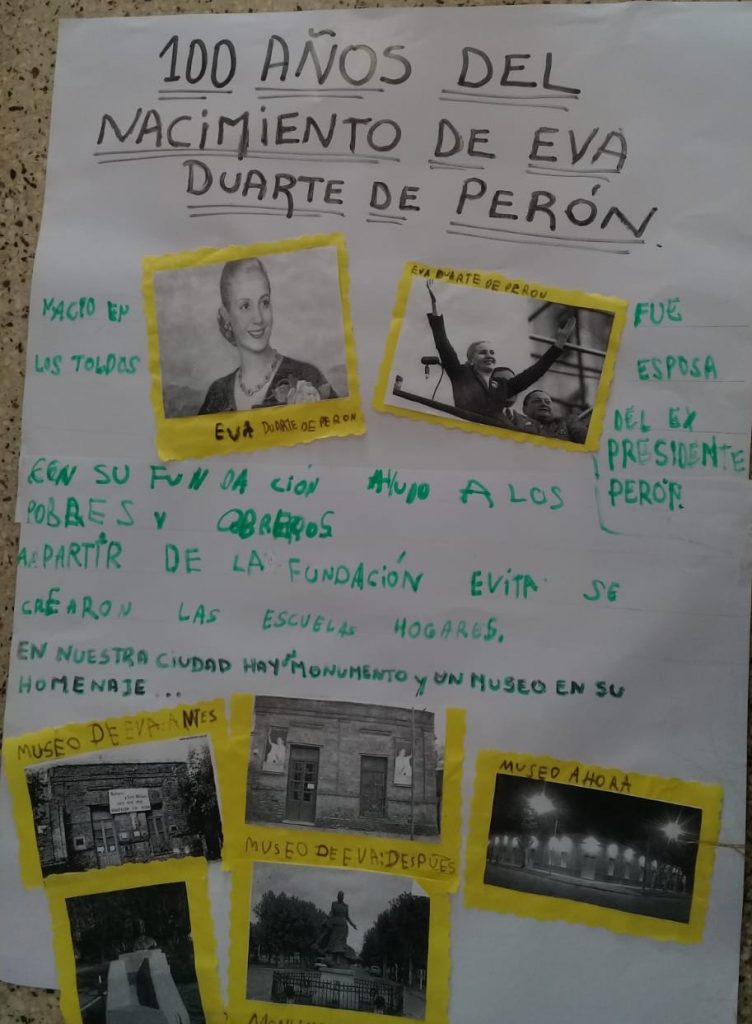 100 AÑOS DEL
NACIMIENTO DE EVA
DUARTE DE PERÓN.
NACIO EN
LOS TOLDOS
EVA DUARTE DE PERON
EVA DUARTE DE PERON
FUE
ESPOSA
DEL EX
PRESIDENTE
PERÓN.
CON SU FUNDACIÓN AYUDO A LOS
POBRES Y OBREROS
A PARTIR DE LA FUNDACIÓN EVITA SE
CREARON LAS ESCUELAS HOGARES.
EN NUESTRA CIUDAD HAY UN MONUMENTO Y UN MUSEO EN SU
HOMENAJE...
MUSEO DE EVA: ANTES
MUSEO DE EVA: DESPÚES
MUSEO AHORA